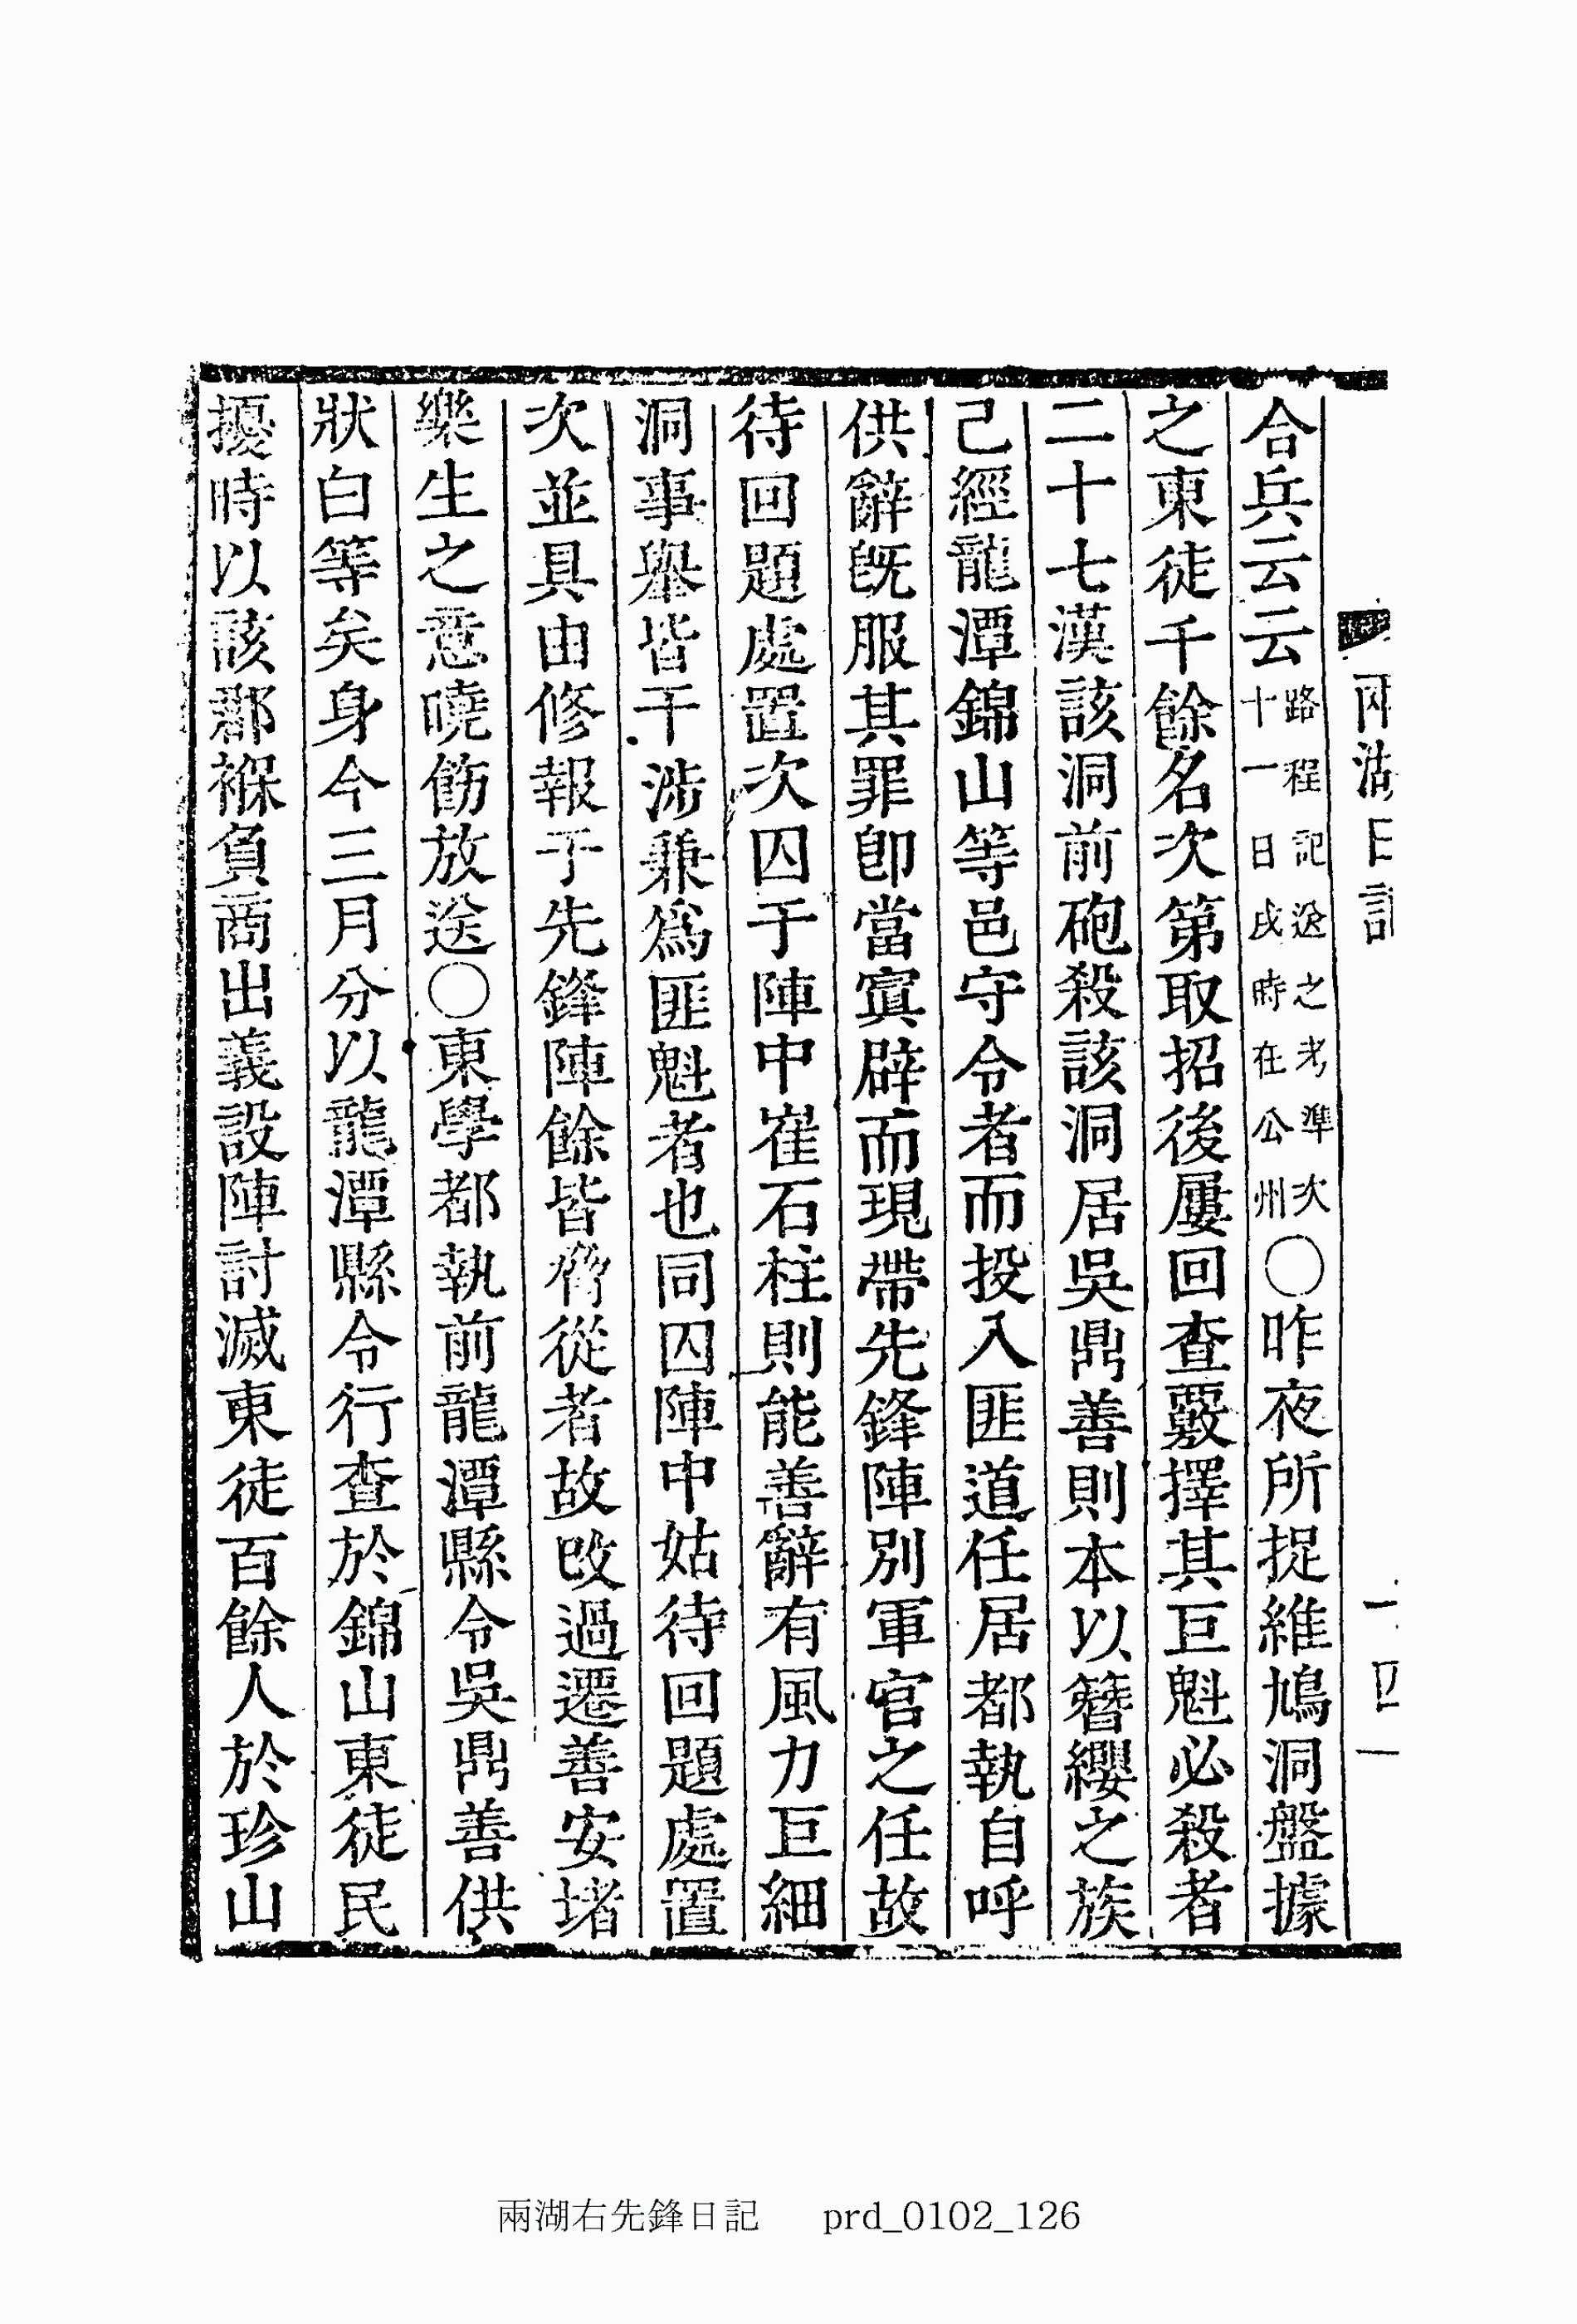 兩湖日記 一 四一
合兵云云路程記送之考準次十一日戌時在公州○昨夜所捉維鳩洞盤據
之東徒千餘名次第取招後屢回查覈擇其巨魁必殺者
二十七漢該洞前砲殺該洞居吳鼎善則本以簪纓之族
己經龍潭錦山等邑守令者而投入匪道任居都執自呼
供辭旣服其罪卽當寘辟而現帶先鋒陣別軍官之任故
待回題處置次囚于陣中崔石柱則能善辭有風力巨細
洞事擧皆干涉兼爲匪魁者也同囚陣中姑待回題處置
次並具由修報于先鋒陣餘皆脅從者故改過遷善安堵
樂生之意曉飭放送○東學都執前龍潭縣令吳鼎善供
狀白等矣身今三月分以龍潭縣令行查於錦山東徒民
擾時以該郡褓負商出義設陣討滅東徒百餘人於珍山
兩湖右先鋒日記 prd_0102_126